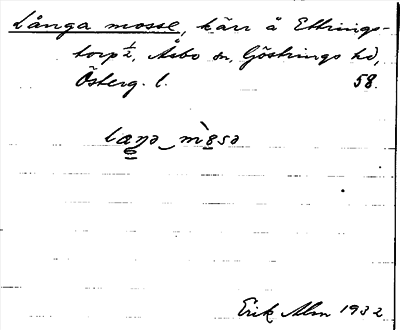 Långa mosse, kärr å Ettrings-
torp ½, Åsbo sn, Göstrings hd,
Österg. l. 58.
Erik Alm 1932